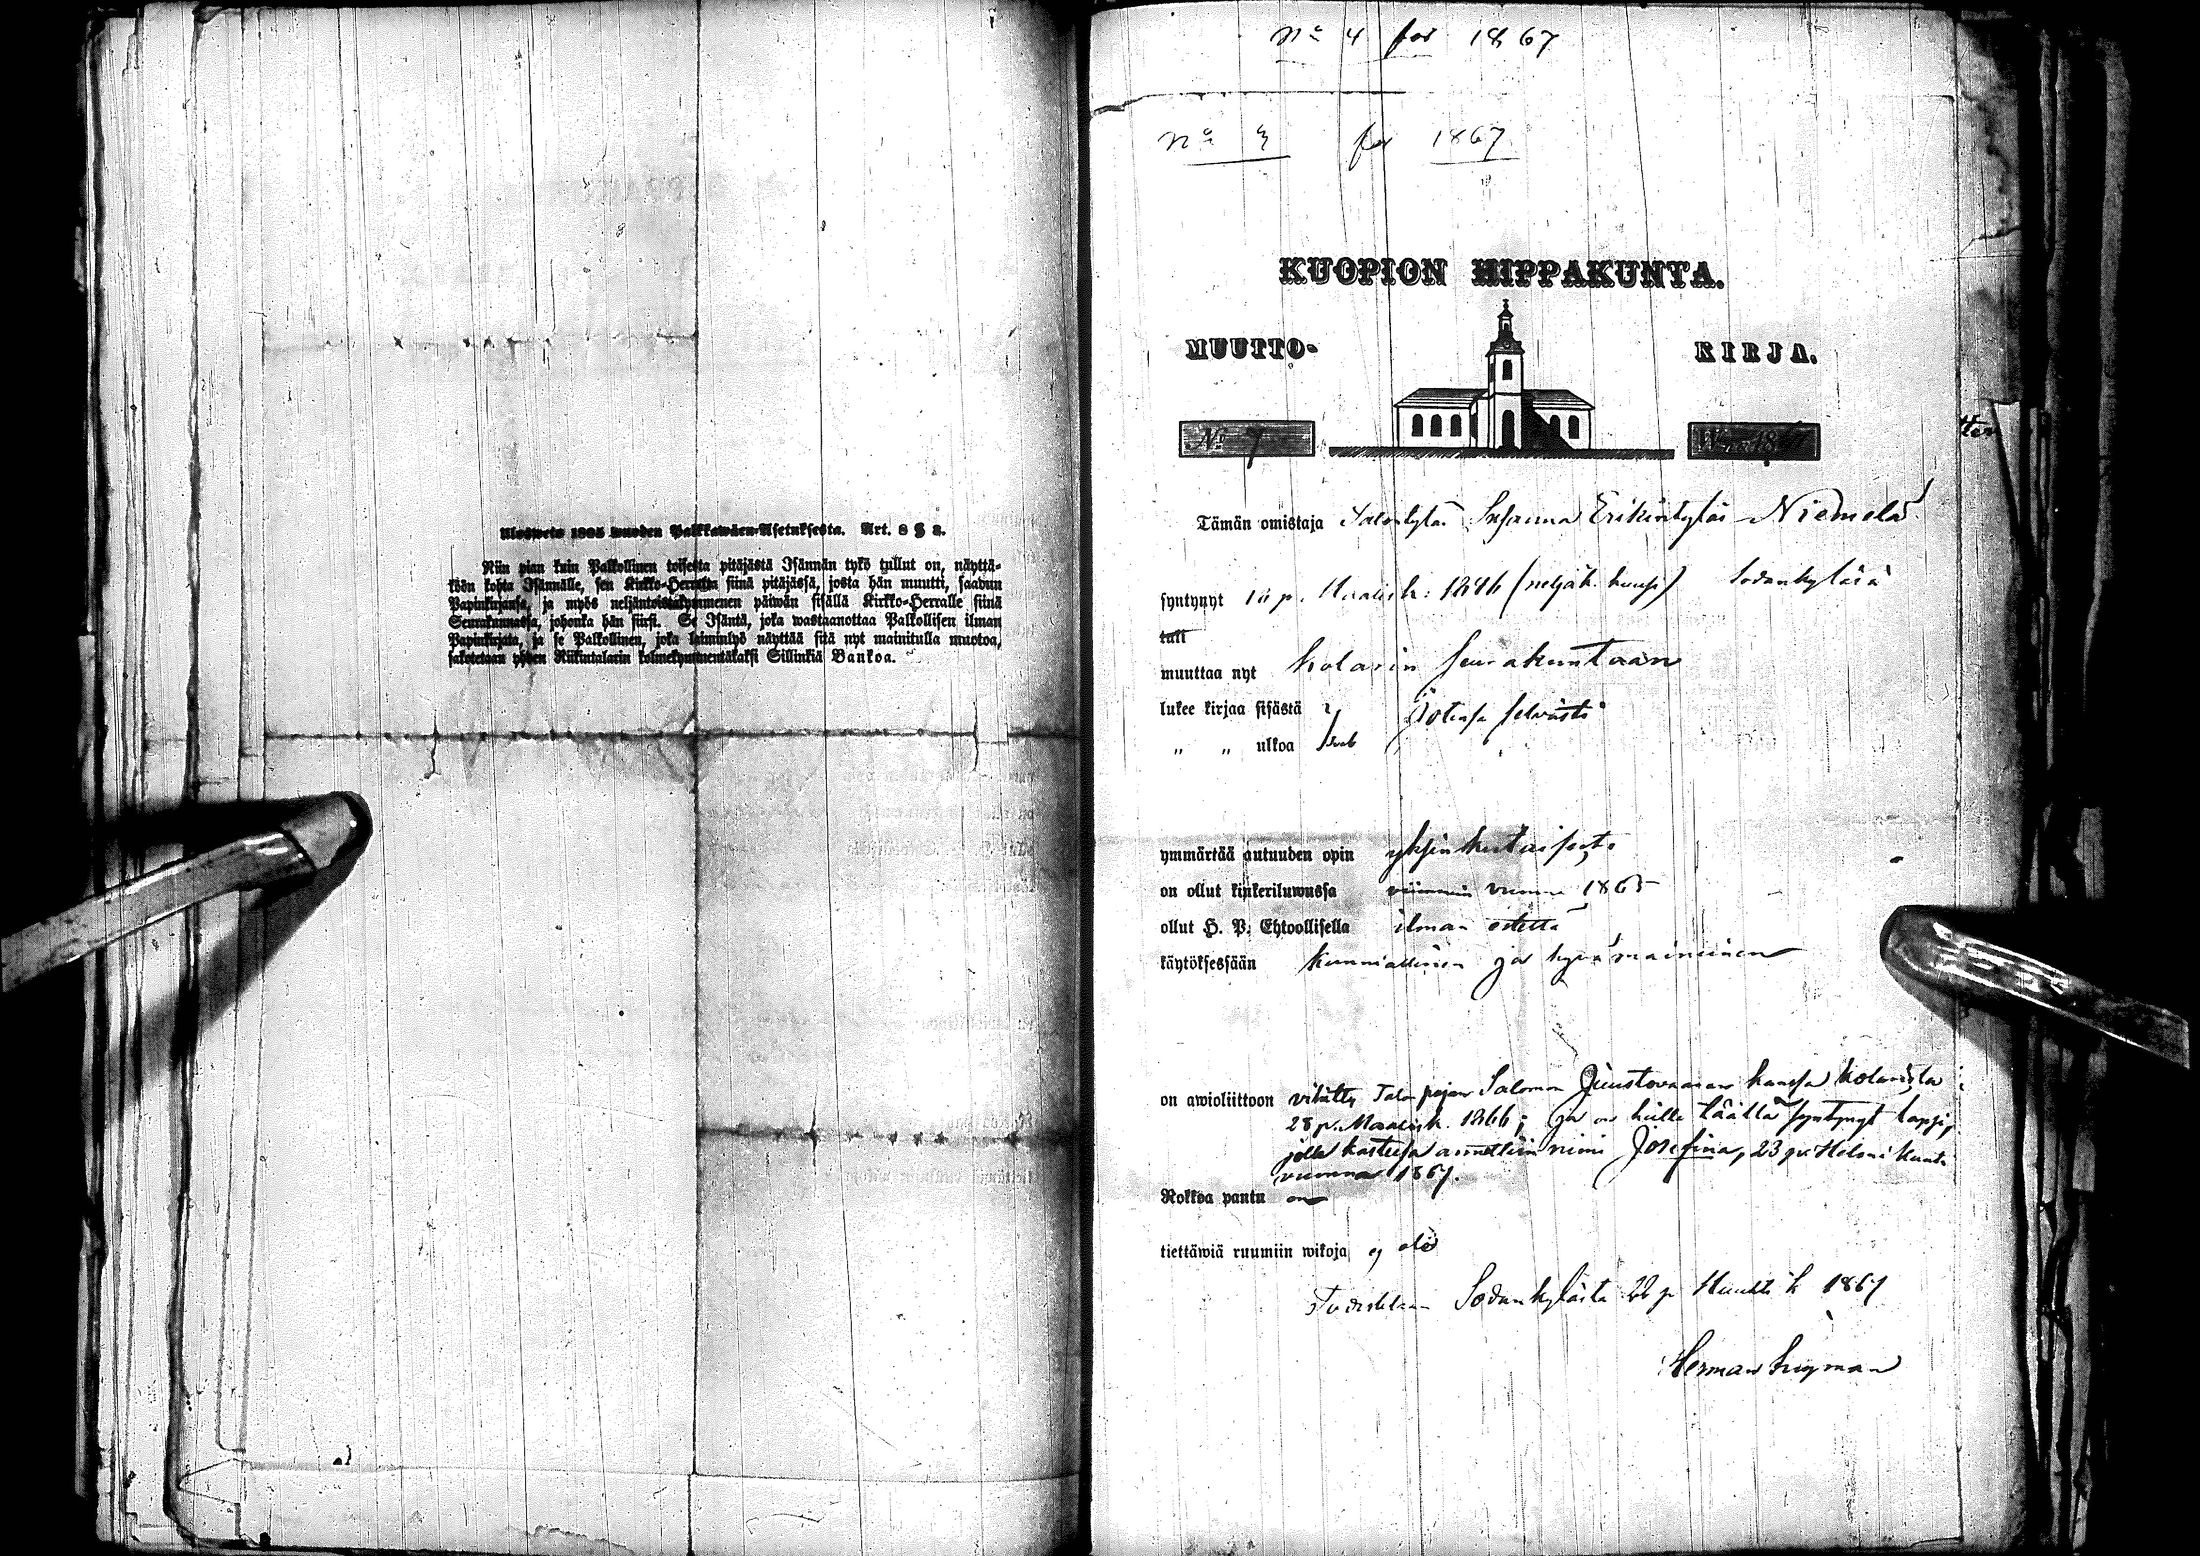 Ulosweto 1805 wuoden Palkkawäen-Asetuksesta. Art. 8 § 2.
Niin pian kuin Palkollinen toisesta pitäjästä Isännän tykö tullut on, näyttä-
köön kohta Isännälle, sen Kirkko-Herralta siinä pitäjässä, josta hän muutti, saadun
Papinkirjansa, ja myös neljäntoistakymmenen päiwän sisällä Kirkko-Herralle siinä
Seurakunnassa, johonka hän siirsi. Se Isäntä, joka wastaanottaa Palkollisen ilman
Papinkirjata, ja se Palkollinen, joka laiminlyö näyttää sitä nyt mainitulla muotoa,
sakotetaan yhden Riikintalarin kolmekymmentäkaksi Sillinkiä Bankoa.
No 4 för 1867
No 3 för 1867
KUOPION HIPPAKUNTA.
MUUTTO- KIRJA.
No 7 W:na 1867
Tämän omistaja Talontytär Susanna Erikintytär Niemelä
syntynyt p. Maalisk: 1846 (neljäk. kuusi) Sodankylässä
tuli
muuttaa nyt Kolarin seurakuntaan
lukee kirjaa sisästä
" " ulkoa selvästi
ymmärtää autuuden opin yksinkertaisesti
on ollut kinkeriluwussa viimmein vuonna 1865
ollut H. P. Ehtoollisella ilman estettä
käytöksessään kunniallinen ja hyvämaineinen
on awioliittoon vihitty Talon pojan Salomon Juustovaaran kanssa Kolarista
28 p. Maalisk. 1866; ja on heille täällä syntynyt lapsi,
jolle kasteessa annettiin nimi Josefina, 23 p. Helmikuuta
vuonna 1867.
Rokkoa pantu on
tiettäwiä ruumiin wikoja ej ole
Todistetaan Sodankylästä 22 p Huhtik 1867
Herman